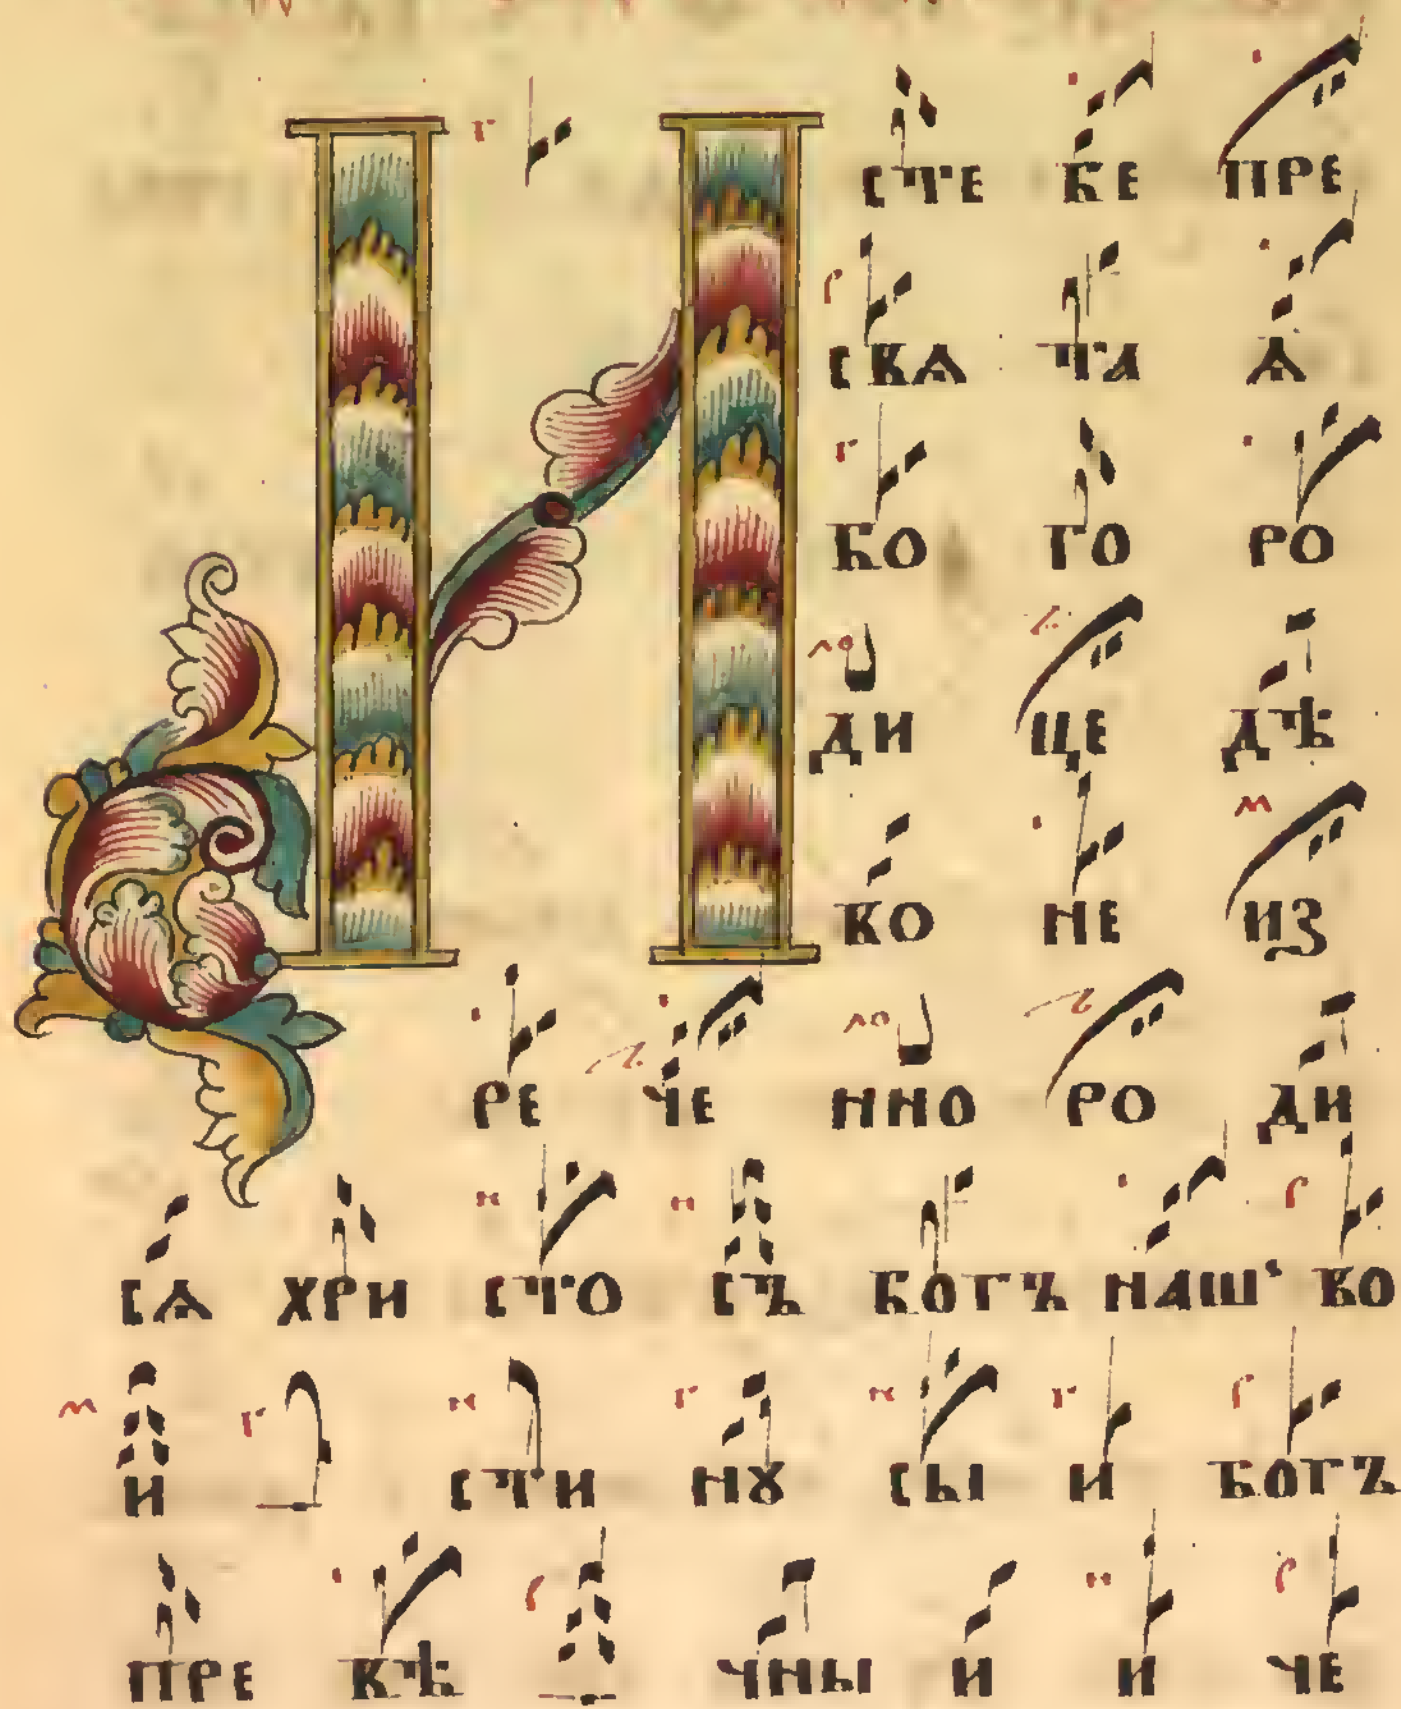 И СТЕ БЕ ПРЕ
СВѦ ТА Ѧ
БО ГО РО
ДИ ЦЕ ДѢ
ВО НЕ ИЗ
РЕ ЧЕ ННО РО ДИ
СѦ ХРИ СТО СЪ БОГЪ НАШ ВО
И СТИ НꙊ СЫ И БОГЪ
ПРЕ ВѢ ЧНЫ И И ЧЕ